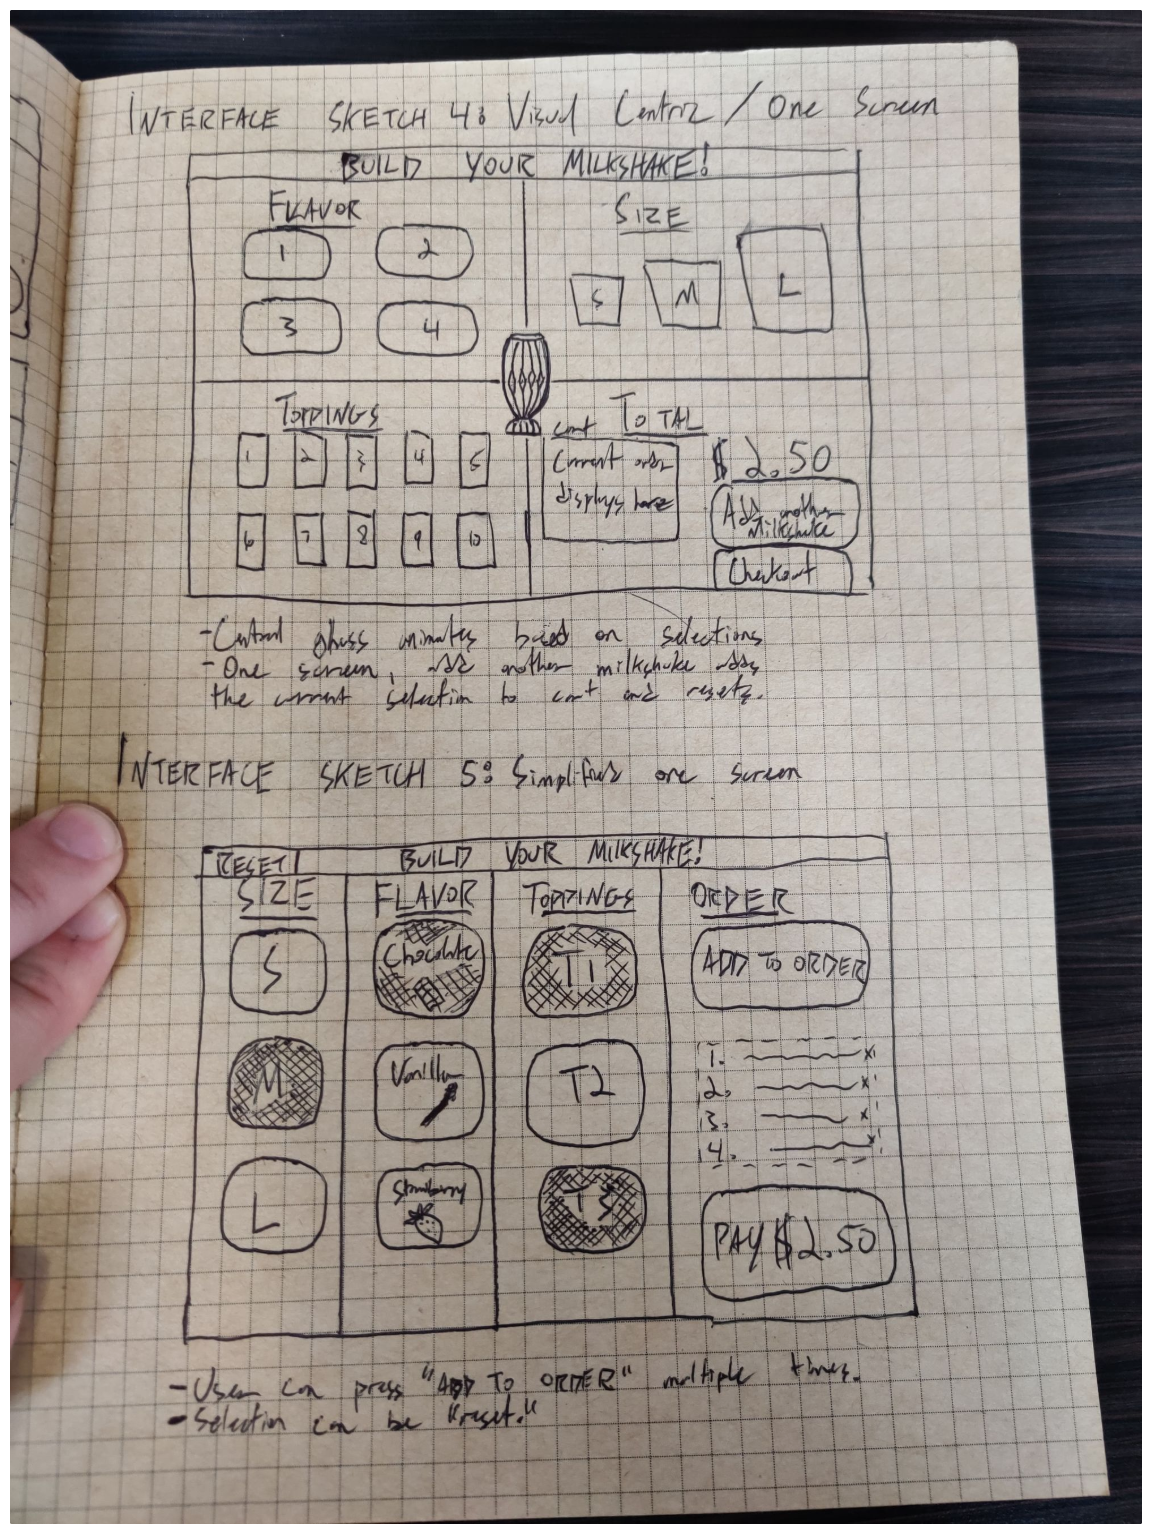 INTERFACE SKETCH 4: Visual Centric / One Screen
BUILD YOUR MILKSHAKE!
FLAVOR
1 2
3 4
SIZE
S M L
TOPPINGS
1 2 3 4 5
6 7 8 9 10
cart TOTAL
Current order
displays here
$2.50
Add another
Milkshake
Checkout
- Central glass animates based on selections
- One screen, add another milkshake adds
the current selection to cart and resets.
INTERFACE SKETCH 5: Simplified one screen
RESET BUILD YOUR MILKSHAKE!
SIZE
S
M
L
FLAVOR
Chocolate
Vanilla
Strawberry
TOPPINGS
T1
T2
T3
ORDER
ADD TO ORDER
1. x
2. x
3. x
4. x
PAY $2.50
- User can press "ADD TO ORDER" multiple times.
- Selection can be "reset."